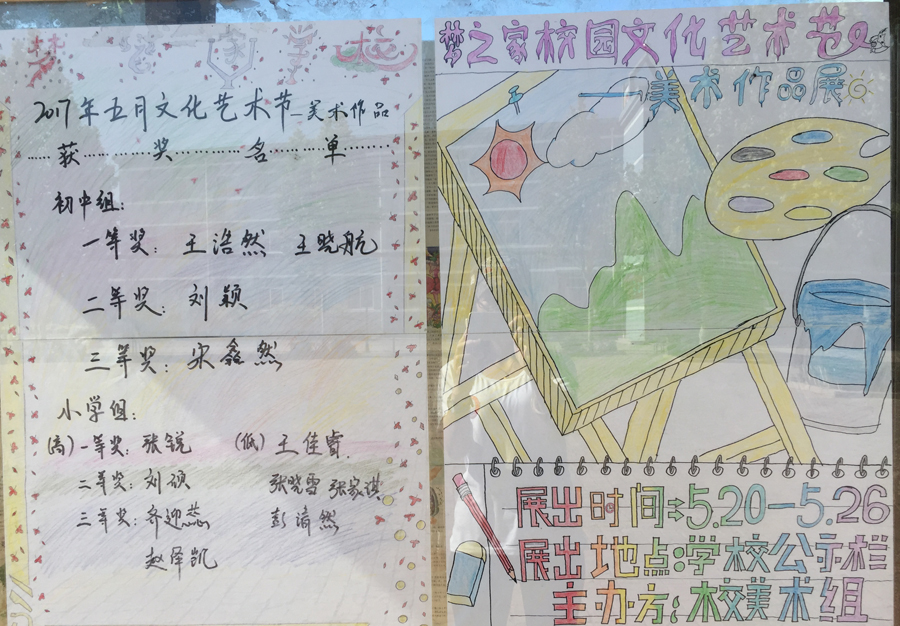 2017年五月文化艺术节—美术作品
获奖名单
初中组:
一等奖: 王浩然 王晓航
二等奖: 刘颖
三等奖: 宋鑫然
小学组:
(高)一等奖: 张锐 (低)王佳睿
二等奖: 刘硕 张晓雪 张家淇
三等奖: 齐迎蕊 彭清然
赵泽凯
梦之家校园文化艺术节
—美术作品展
展出时间:5.20—5.26
展出地点:学校公示栏
主办方:校美术组